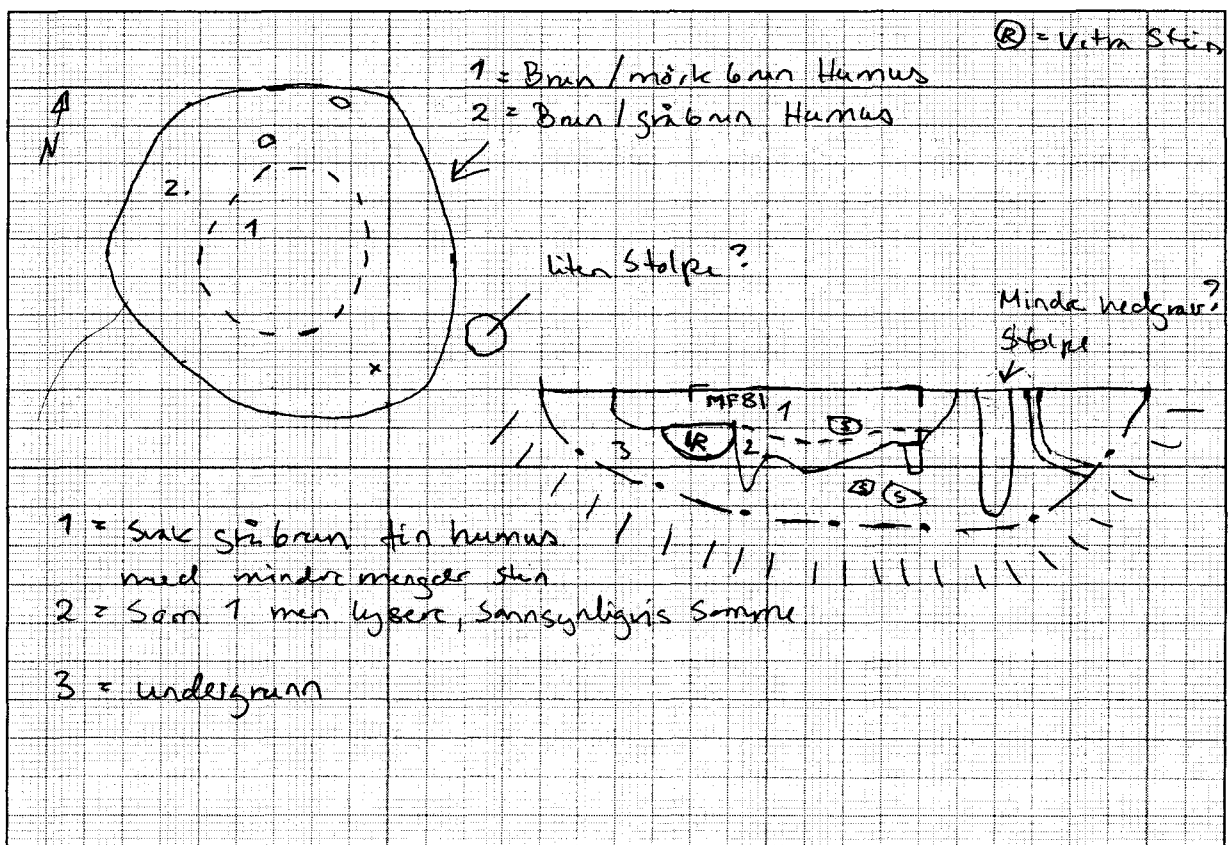 Ⓡ = Vitra Stein
1 = Brun / mörk brun Humus
2 = Brun / gråbrun Humus
N
2.
1
liten Stolpe?
Mindre nedgrav?
Stolpe
MFB1
1
S
R
2
3
S
S
1 = Svak gråbrun fin humus
med mindre mengder stein
2 = Som 1 men lysere, sannsynligvis samme
3 = undergrunn